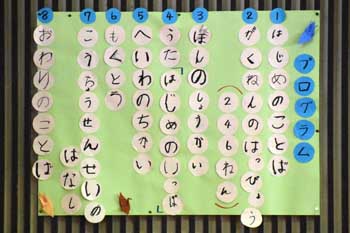 プログラム
1 はじめのことば
2 がくねんのはっぴょう
(246ねん)
3 ほんのしょうかい
4 うた「はじめのいっぽ」
5 へいわのちかい
6 もくとう
7 こうちょうせんせいの
はなし
8 おわりのことば